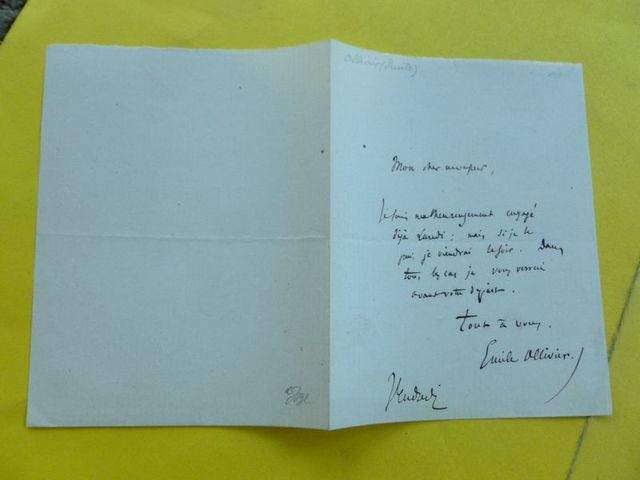 Ollivier (Emile)
Mon cher monsieur,
Je suis malheureusement engagé
déjà Lundi ; mais si je le
puis je viendrai le soir. Dans
tous les cas je vous verrai
avant votre départ.
Tout à vous.
Emile Ollivier
Vendredi